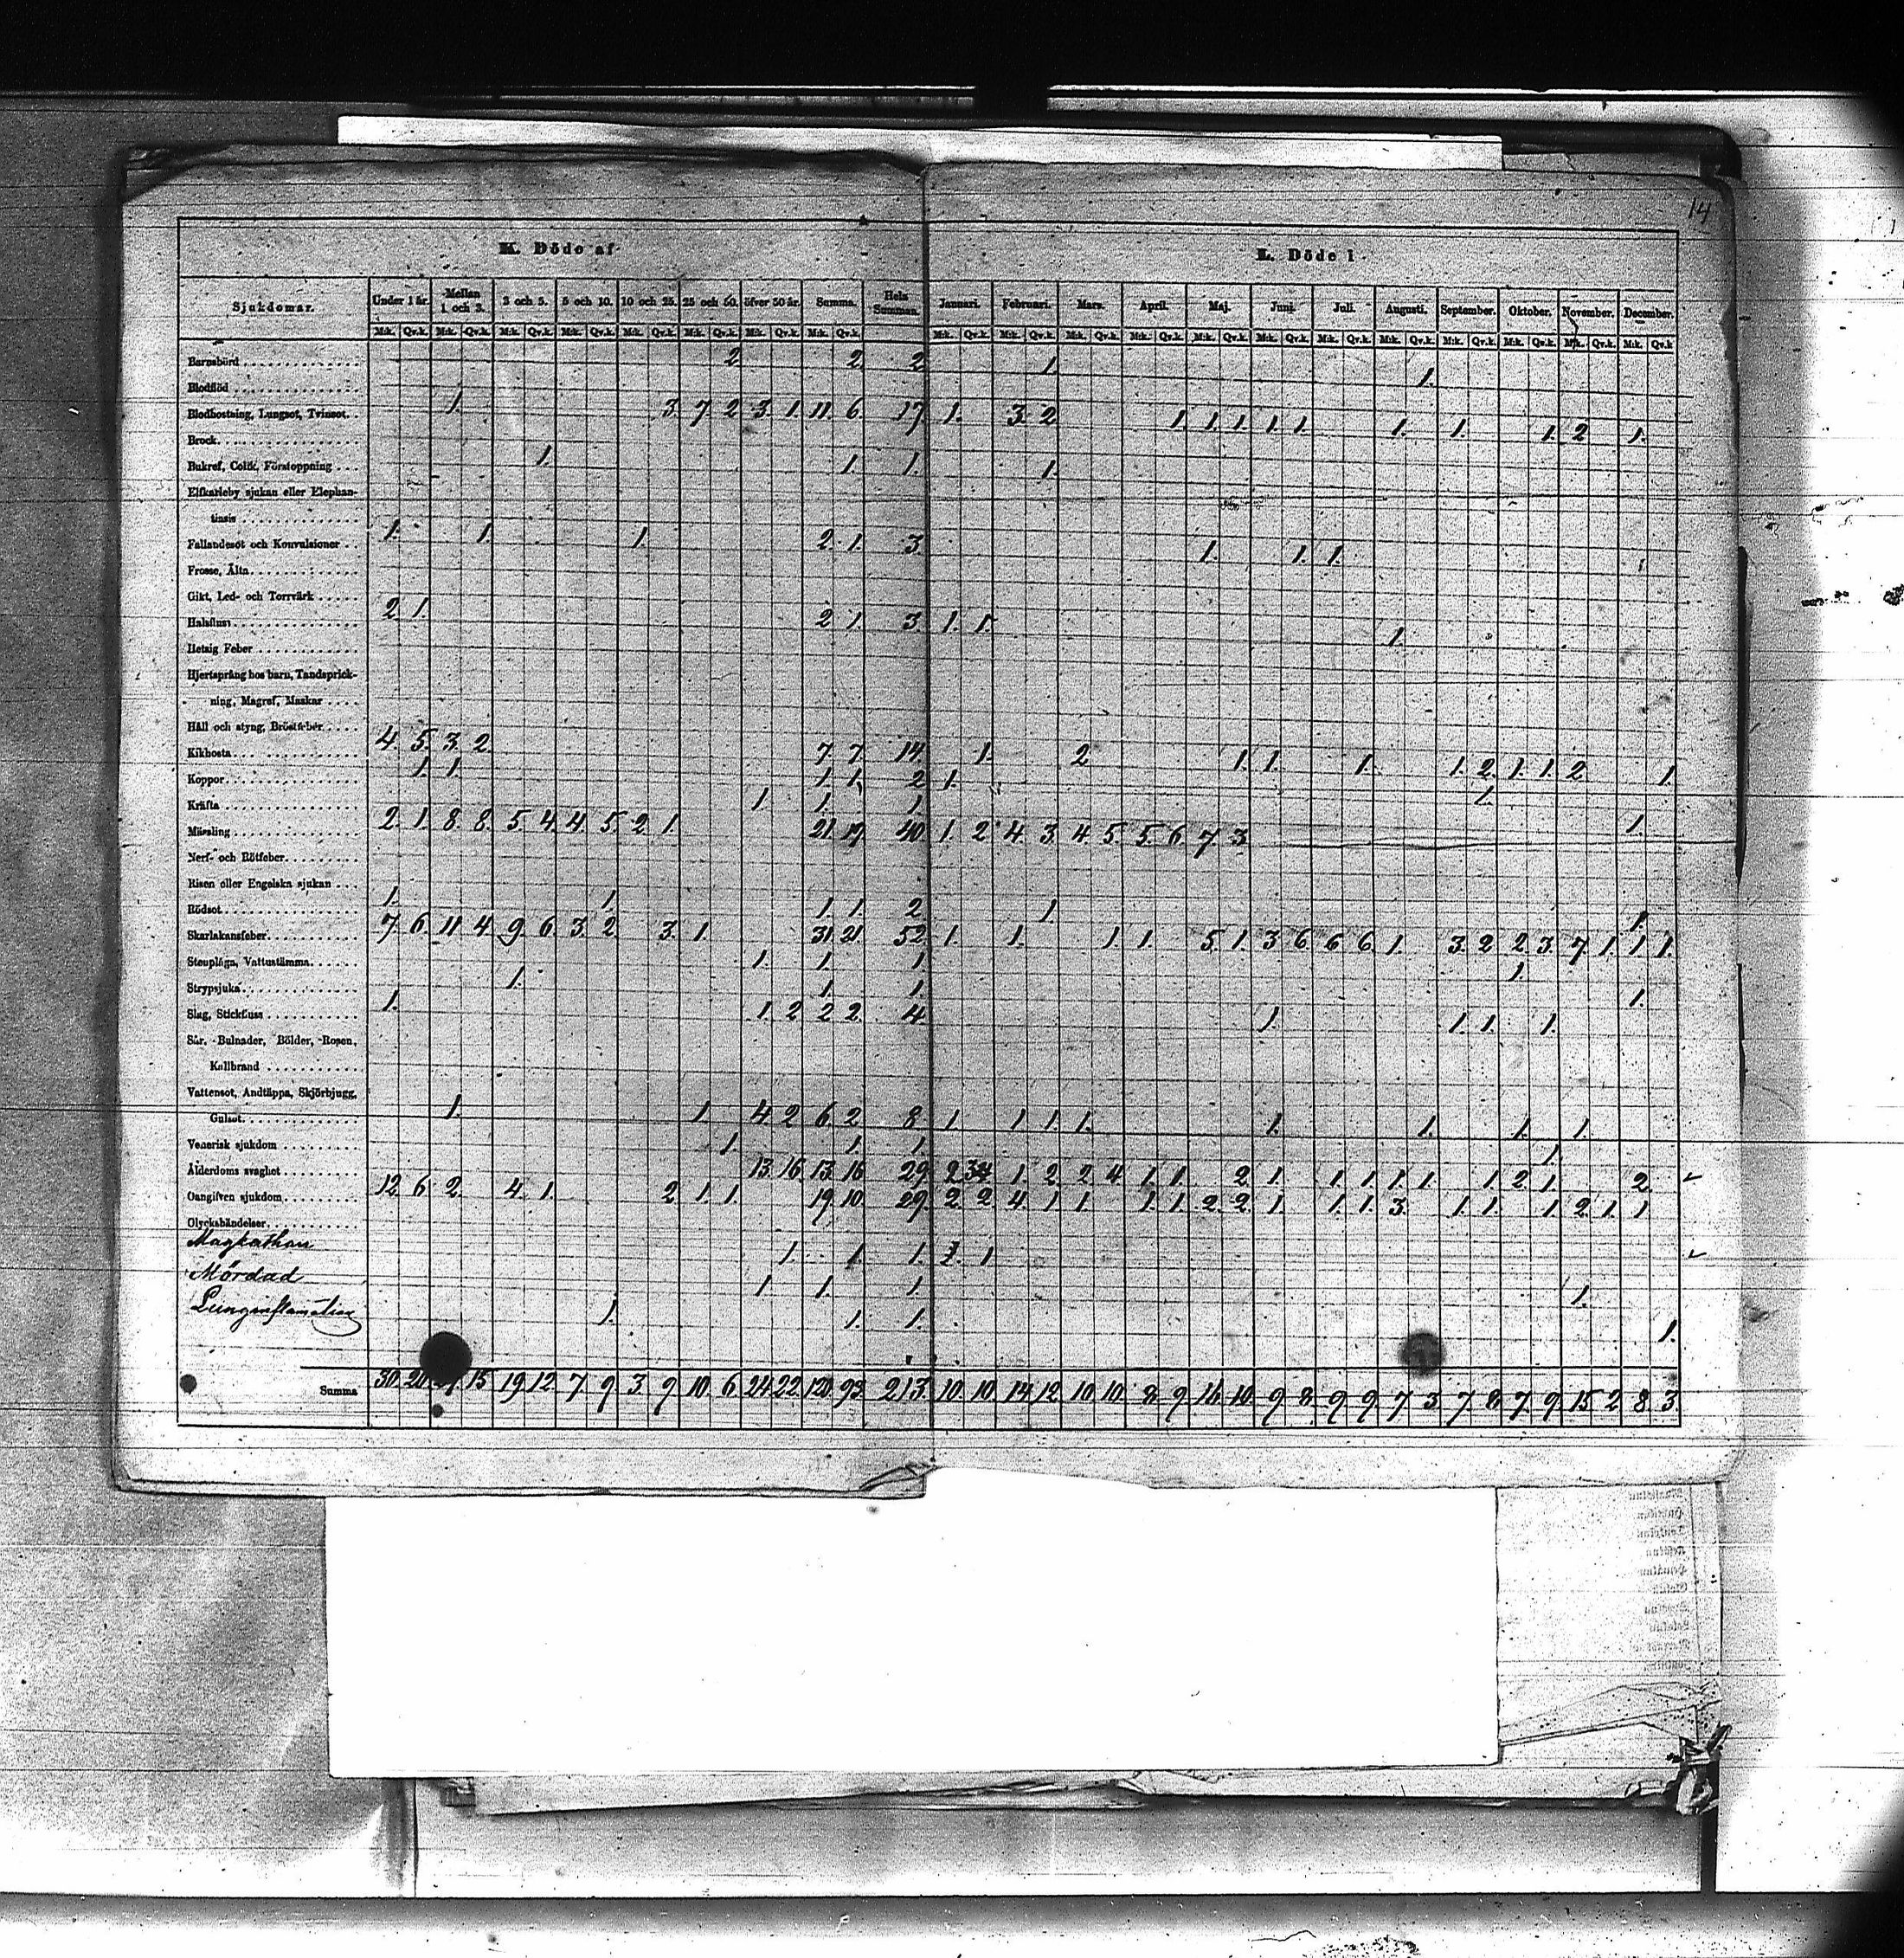 14
K. Döde af
L. Döde i
Sjukdomar. Under 1 år. Mellan 1 och 3. 3 och 5. 5 och 10. 10 och 25. 25 och 50. öfver 50 år. Summa. Hela Summan. Januari. Februari. Mars. April. Maj. Juni. Juli. Augusti. September. Oktober. November. December.
M:k. Qv.k. M:k. Qv.k. M:k. Qv.k. M:k. Qv.k. M:k. Qv.k. M:k. Qv.k. M:k. Qv.k. M:k. Qv.k. M:k. Qv.k. M:k. Qv.k. M:k. Qv.k. M:k. Qv.k. M:k. Qv.k. M:k. Qv.k. M:k. Qv.k. M:k. Qv.k. M:k. Qv.k. M:k. Qv.k. M:k. Qv.k. M:k. Qv.k
Barnsbörd 2 2 2 1. 1.
Blodflöd
Blodhostning, Lungsot, Tvinsot. 1. 3. 7 2 3. 1. 11 6. 17 1. 3 2 1 1. 1. 1. 1. 1. 1. 1. 2 1.
Brock
Bukref, Colik, Förstoppning 1. 1. 1. 1.
Elfkarleby sjukan eller Elephan-
tiasis
Fallandesot och Konvulsioner 1. 1. 1. 2 1. 3 1. 1. 1.
Frosse, Älta
Gikt, Led- och Torrvärk
Halsfluss 2 1. 2 1. 3. 1. 1. 1.
Hetsig Feber
Hjertsprång hos barn, Tandsprick-
ning, Magref, Maskar
Håll och styng, Bröstfeber
Kikhosta 4 5 3. 2 7 7. 14 1. 2 1. 1. 1. 1. 2. 1. 1. 2 1.
Koppor 1. 1. 1. 1. 2 1. 1.
Kräfta 1 1. 1. 1.
Mässling 2. 1. 8. 8. 5. 4. 4. 5. 2. 1. 21 19 40 1. 2 4. 3. 4 5. 5. 6. 7. 3
Nerf- och Rötfeber
Risen eller Engelska sjukan
Rödsot 1. 1. 1. 1. 2. 1. 1.
Skarlakansfeber 7 6 11 4 9. 6. 3. 2 3. 1. 31 21 52 1. 1. 1. 1. 5. 1. 3 6 6 6 1. 3. 2 2. 3. 7 1. 1 1.
Stenplåga, Vattustämma 1. 1. 1. 1.
Strypsjuka 1. 1. 1. 1.
Slag, Stickfluss 1. 1. 2 2 2. 4. 1. 1. 1. 1.
Sår, Bulnader, Bölder, Rosen,
Kallbrand
Vattensot, Andtäppa, Skjörbjugg,
Gulsot 1. 1. 4 2 6. 2 8 1 1 1. 1. 1. 1. 1. 1.
Venerisk sjukdom 1. 1. 1. 1.
Ålderdoms svaghet 13. 16. 13. 16 29 2 3 1. 2 2 4 1. 1. 2 1. 1. 1 1. 1 1. 2 1. 2
Oangifven sjukdom 12 6 2. 4. 1. 2 1. 1. 19 10. 29. 2. 2 4. 1. 1. 1. 1. 2. 2. 1 1. 1. 3. 1. 1. 1. 2. 1. 1
Olyckshändelser
Magkathar 1. 1. 1. 1
Mördad 1 1. 1. 1.
Lunginflamation 1. 1. 1. 1.
Summa 30. 20. 15 19 12 7. 9 3. 9 10. 6. 24 22. 120. 93. 213. 10. 10. 14 12. 10. 10. 8. 9 16. 10. 9 8. 9 9. 7 3. 7. 8 7. 9. 15 2 8. 3